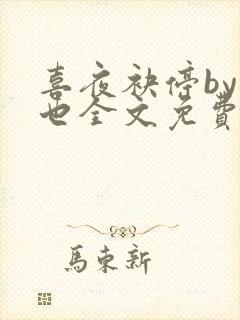 喜夜袂停by
也全文免費
馬東新